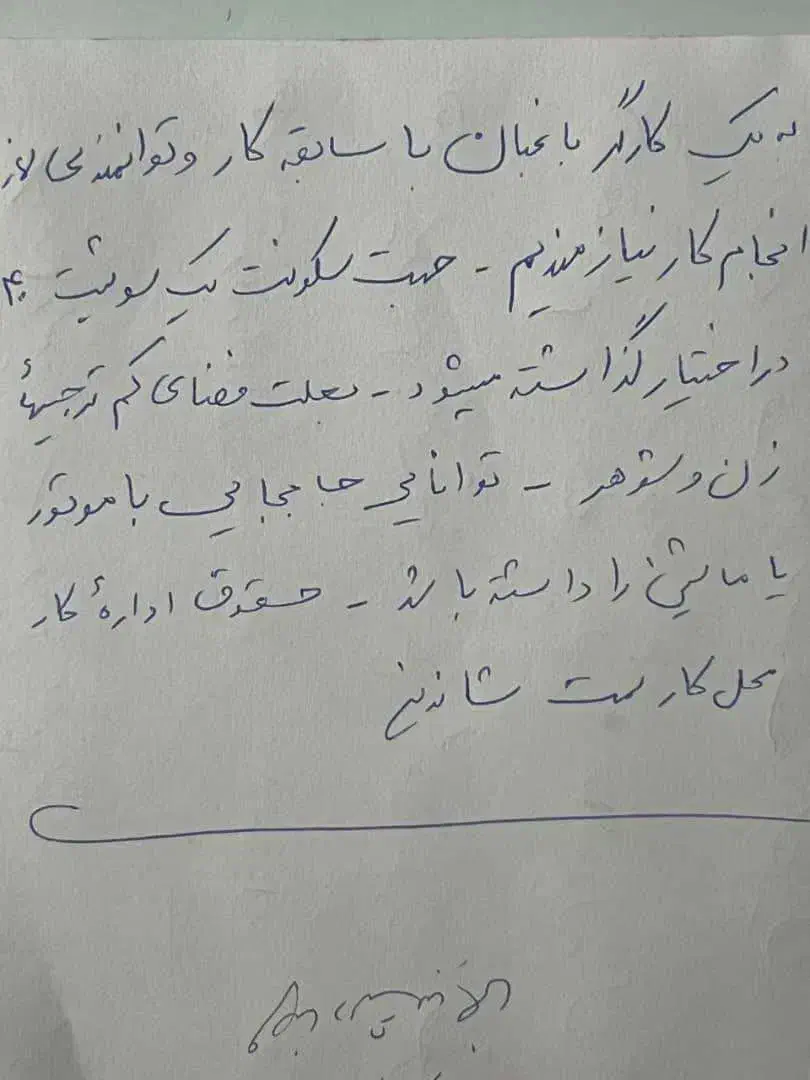 به یک کارگر باغبان با سابقه کار و توانمندی لاز
انجام کار نیازمندیم - جهت سکونت یک سوئیت ۴۰
در اختیار گذاشته میشود - بعلت فضای کم ترجیهاً
زن و شوهر - توانایی جابجایی با موتور
یا ماشین را داشته باشد - حقوق ادارهٔ کار
محل کار سمت شاندیز